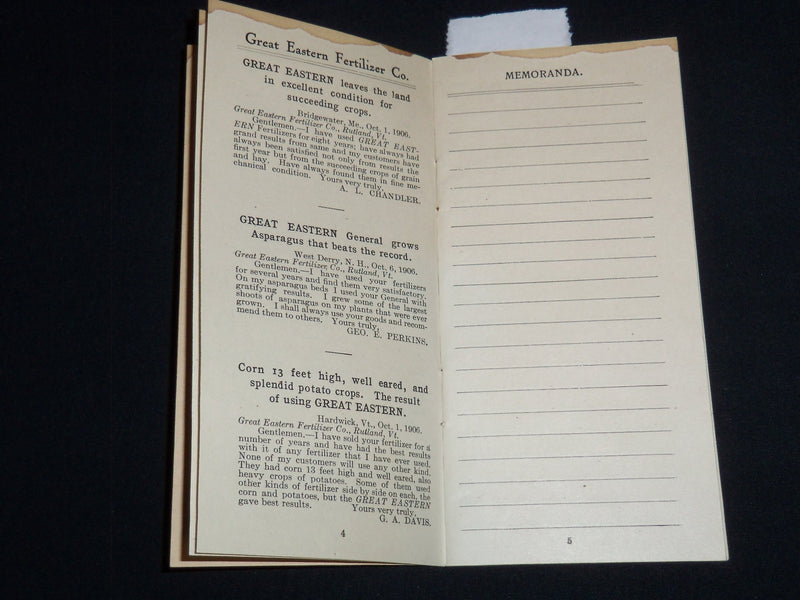 Great Eastern Fertilizer Co.
GREAT EASTERN leaves the land
in excellent condition for
succeeding crops.
Bridgewater, Me., Oct. 1, 1906.
Great Eastern Fertilizer Co., Rutland, Vt.
Gentlemen.—I have used GREAT EAST-
ERN Fertilizers for eight years; have always had
grand results from same and my customers have
always been satisfied not only from results the
first year but from the succeeding crops of grain
and hay. Have always found them in fine me-
chanical condition. Yours very truly,
A. L. CHANDLER.
GREAT EASTERN General grows
Asparagus that beats the record.
West Derry, N. H., Oct. 6, 1906.
Great Eastern Fertilizer Co., Rutland, Vt.
Gentlemen.—I have used your fertilizers
for several years and find them very satisfactory.
On my asparagus beds I used your General with
gratifying results. I grew some of the largest
shoots of asparagus on my plants that were ever
grown. I shall always use your goods and recom-
mend them to others. Yours truly,
GEO. E. PERKINS.
Corn 13 feet high, well eared, and
splendid potato crops. The result
of using GREAT EASTERN.
Hardwick, Vt., Oct. 1, 1906.
Great Eastern Fertilizer Co., Rutland, Vt.
Gentlemen.—I have sold your fertilizer for a
number of years and have had the best results
with it of any fertilizer that I have ever used.
None of my customers will use any other kind.
They had corn 13 feet high and well eared, also
heavy crops of potatoes. Some of them used
other kinds of fertilizer side by side on each, the
corn and potatoes, but the GREAT EASTERN
gave best results. Yours very truly,
G. A. DAVIS.
4
MEMORANDA.
5